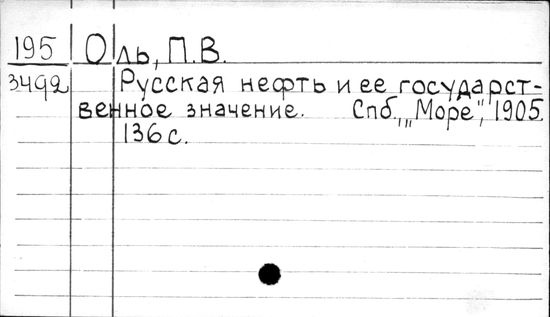 195 Оль, П.В.
3492 Русская нефть и ее государст-
венное значение. Спб., „Море", 1905.
136 с.